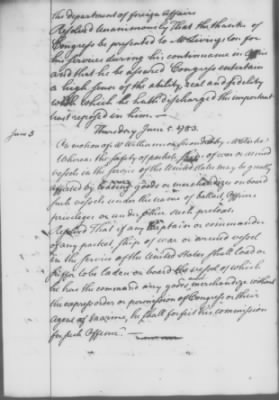 the department of foreign Affairs
Resolved unanimously That the thanks of
Congress be presented to Mr Livingston for
his services during his continuance in office
and that he be assured Congress entertain
a high sense of the ability, zeal and fidelity
with which he hath discharged the important
trust reposed in him.
June 5
Thursday June 5. 1783.
On motion of Mr Williamson seconded by Mr
Whereas the safety of packets, ships of war or armed
vessels in the service of the United States may be greatly
affected by loading goods or merchandizes on board
such vessels under the name of ballast, officers
privileges or under other such pretext.
Resolved That if any captain or commander
of any packet, ship of war or armed vessel
in the service of the United States shall load or
suffer to be laden on board the vessel of which
he has the command any goods or merchandize without
the express order or permission of Congress or their
agent of marine, he shall forfeit his commission
for such offence.